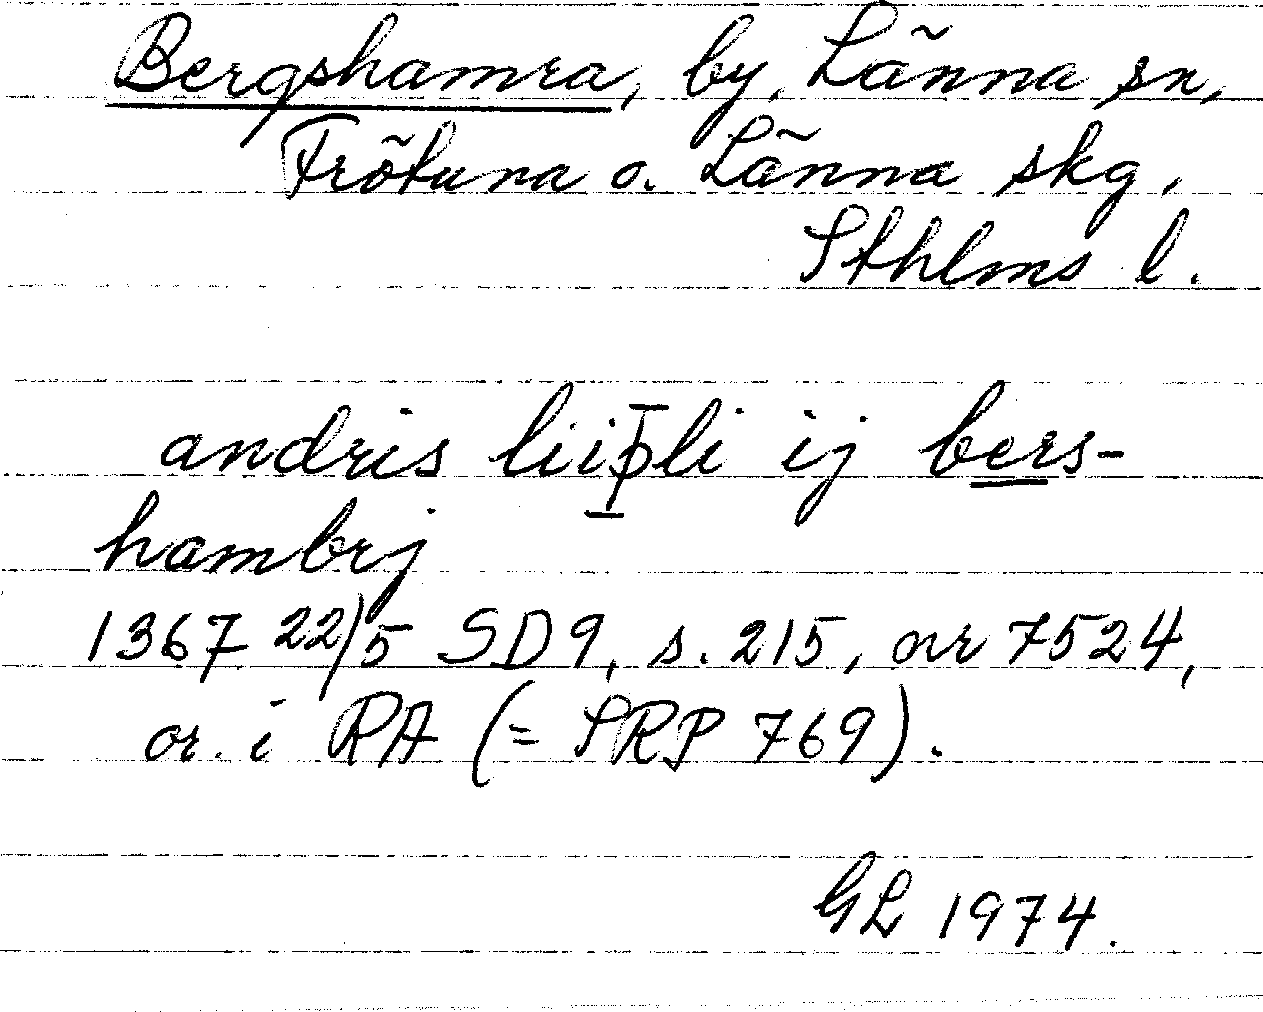 Bergshamra, by, Länna sn,
Frötuna o. Länna skg,
Sthlms l.
andris liiꝑli ij bers-
hambrj
1367 22/5 SD9, s. 215, nr 7524,
or. i RA (= SRP 769).
GL 1974.